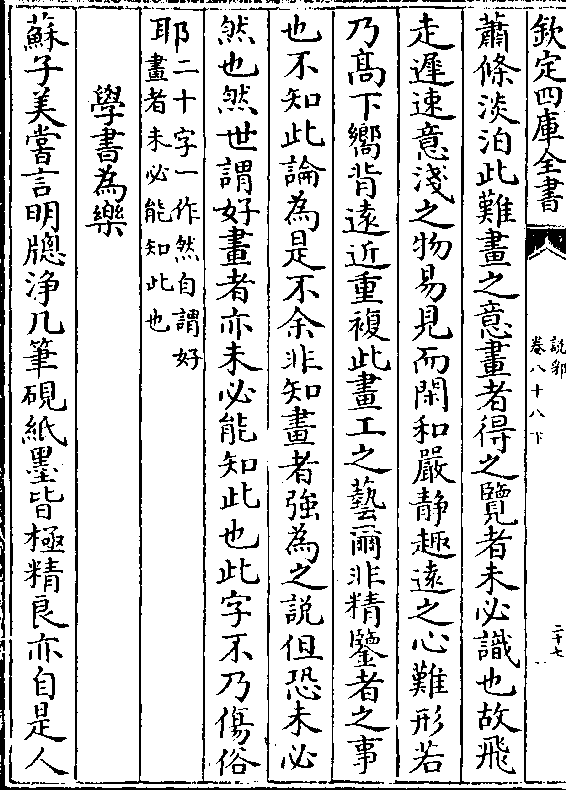 欽定四庫全書
說郛
卷八十八下
二十七
蕭條淡泊此難畫之意畫者得之覽者未必識也故飛
走遲速意淺之物易見而閑和嚴静趣逺之心難形若
乃髙下嚮背逺近重複此畫工之藝爾非精鑒者之事
也不知此論為是不余非知畫者強為之説但恐未必
然也然世謂好畫者亦未必能知此也此字不乃傷俗
耶二十字一作然自謂好
畫者未必能知此也
學書為樂
蘇子美嘗言明牕浄几筆硯紙墨皆極精良亦自是人